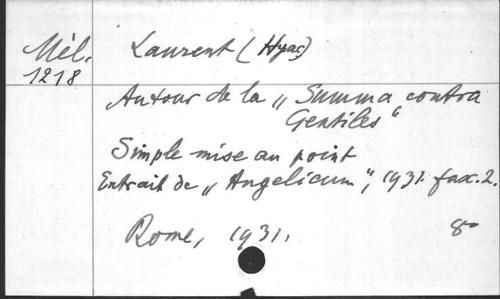 Mél. 1218
Laurent (Hyac)
Autour de la „Summa contra
Gentiles“
Simple mise au point
Extrait de „Angelicum“, 1931. fasc. 2.
Rome, 1931. 8°